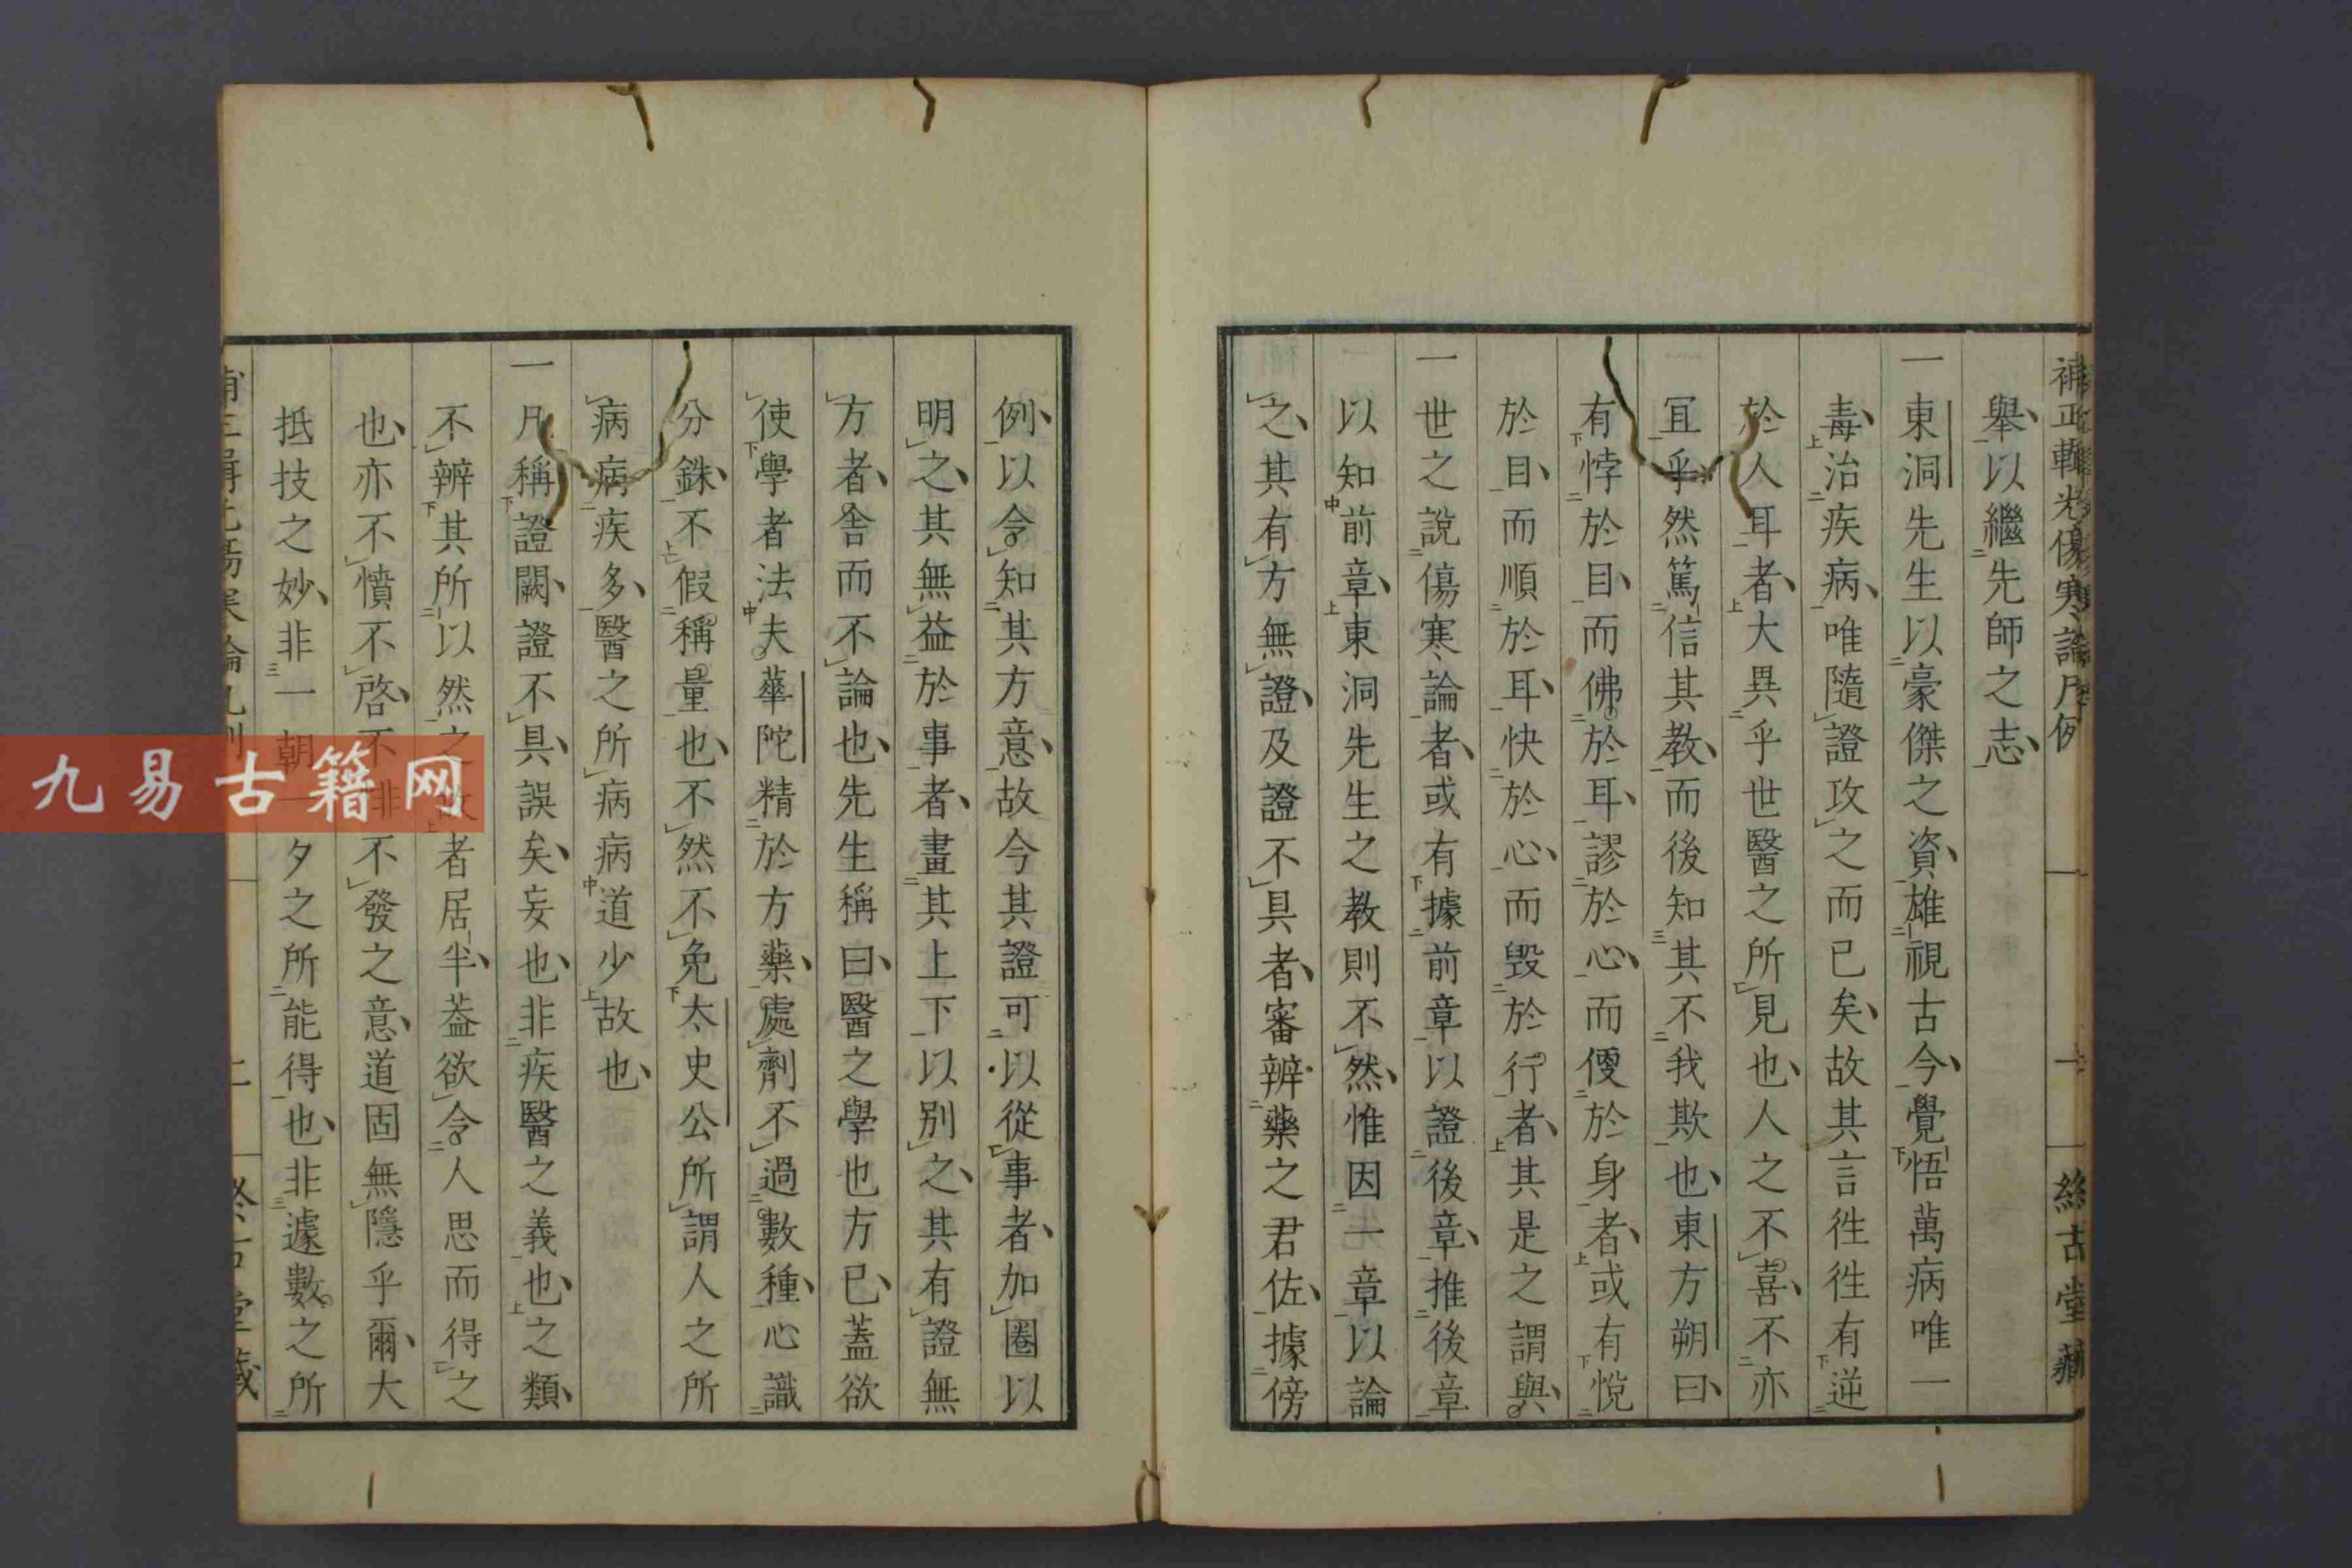 補正輯光傷寒論凡例
一
絲古堂藏
舉以繼先師之志
一東洞先生以豪傑之資雄視古今覺悟萬病唯一
毒治疾病唯隨證攻之而已矣故其言徃徃有逆
於人耳者大異乎世醫之所見也人之不喜不亦
冝乎然篤信其教而後知其不我欺也東方朔曰
有悖於目而佛於耳謬於心而便於身者或有悅
於目而順於耳快於心而毀於行者其是之謂與
一世之說傷寒論者或有據前章以證後章推後章
以知前章東洞先生之教則不然惟因一章以論
之其有方無證及證不具者審辨藥之君佐據傍
例以令知其方意故今其證可以從事者加圈以
明之其無益於事者畫其上下以別之其有證無
方者舍而不論也先生稱曰醫之學也方已蓋欲
使學者法夫華陀精於方藥處劑不過數種心識
分銖不假稱量也不然不免太史公所謂人之所
病病疾多醫之所病病道少故也
一凡稱證闕證不具誤矣妄也非疾醫之義也之類
不辨其所以然之故者居半葢欲令人思而得之
也亦不憤不啓不悱不發之意道固無隱乎爾大
抵技之妙非一朝一夕之所能得也非遽數之所
九易古籍网